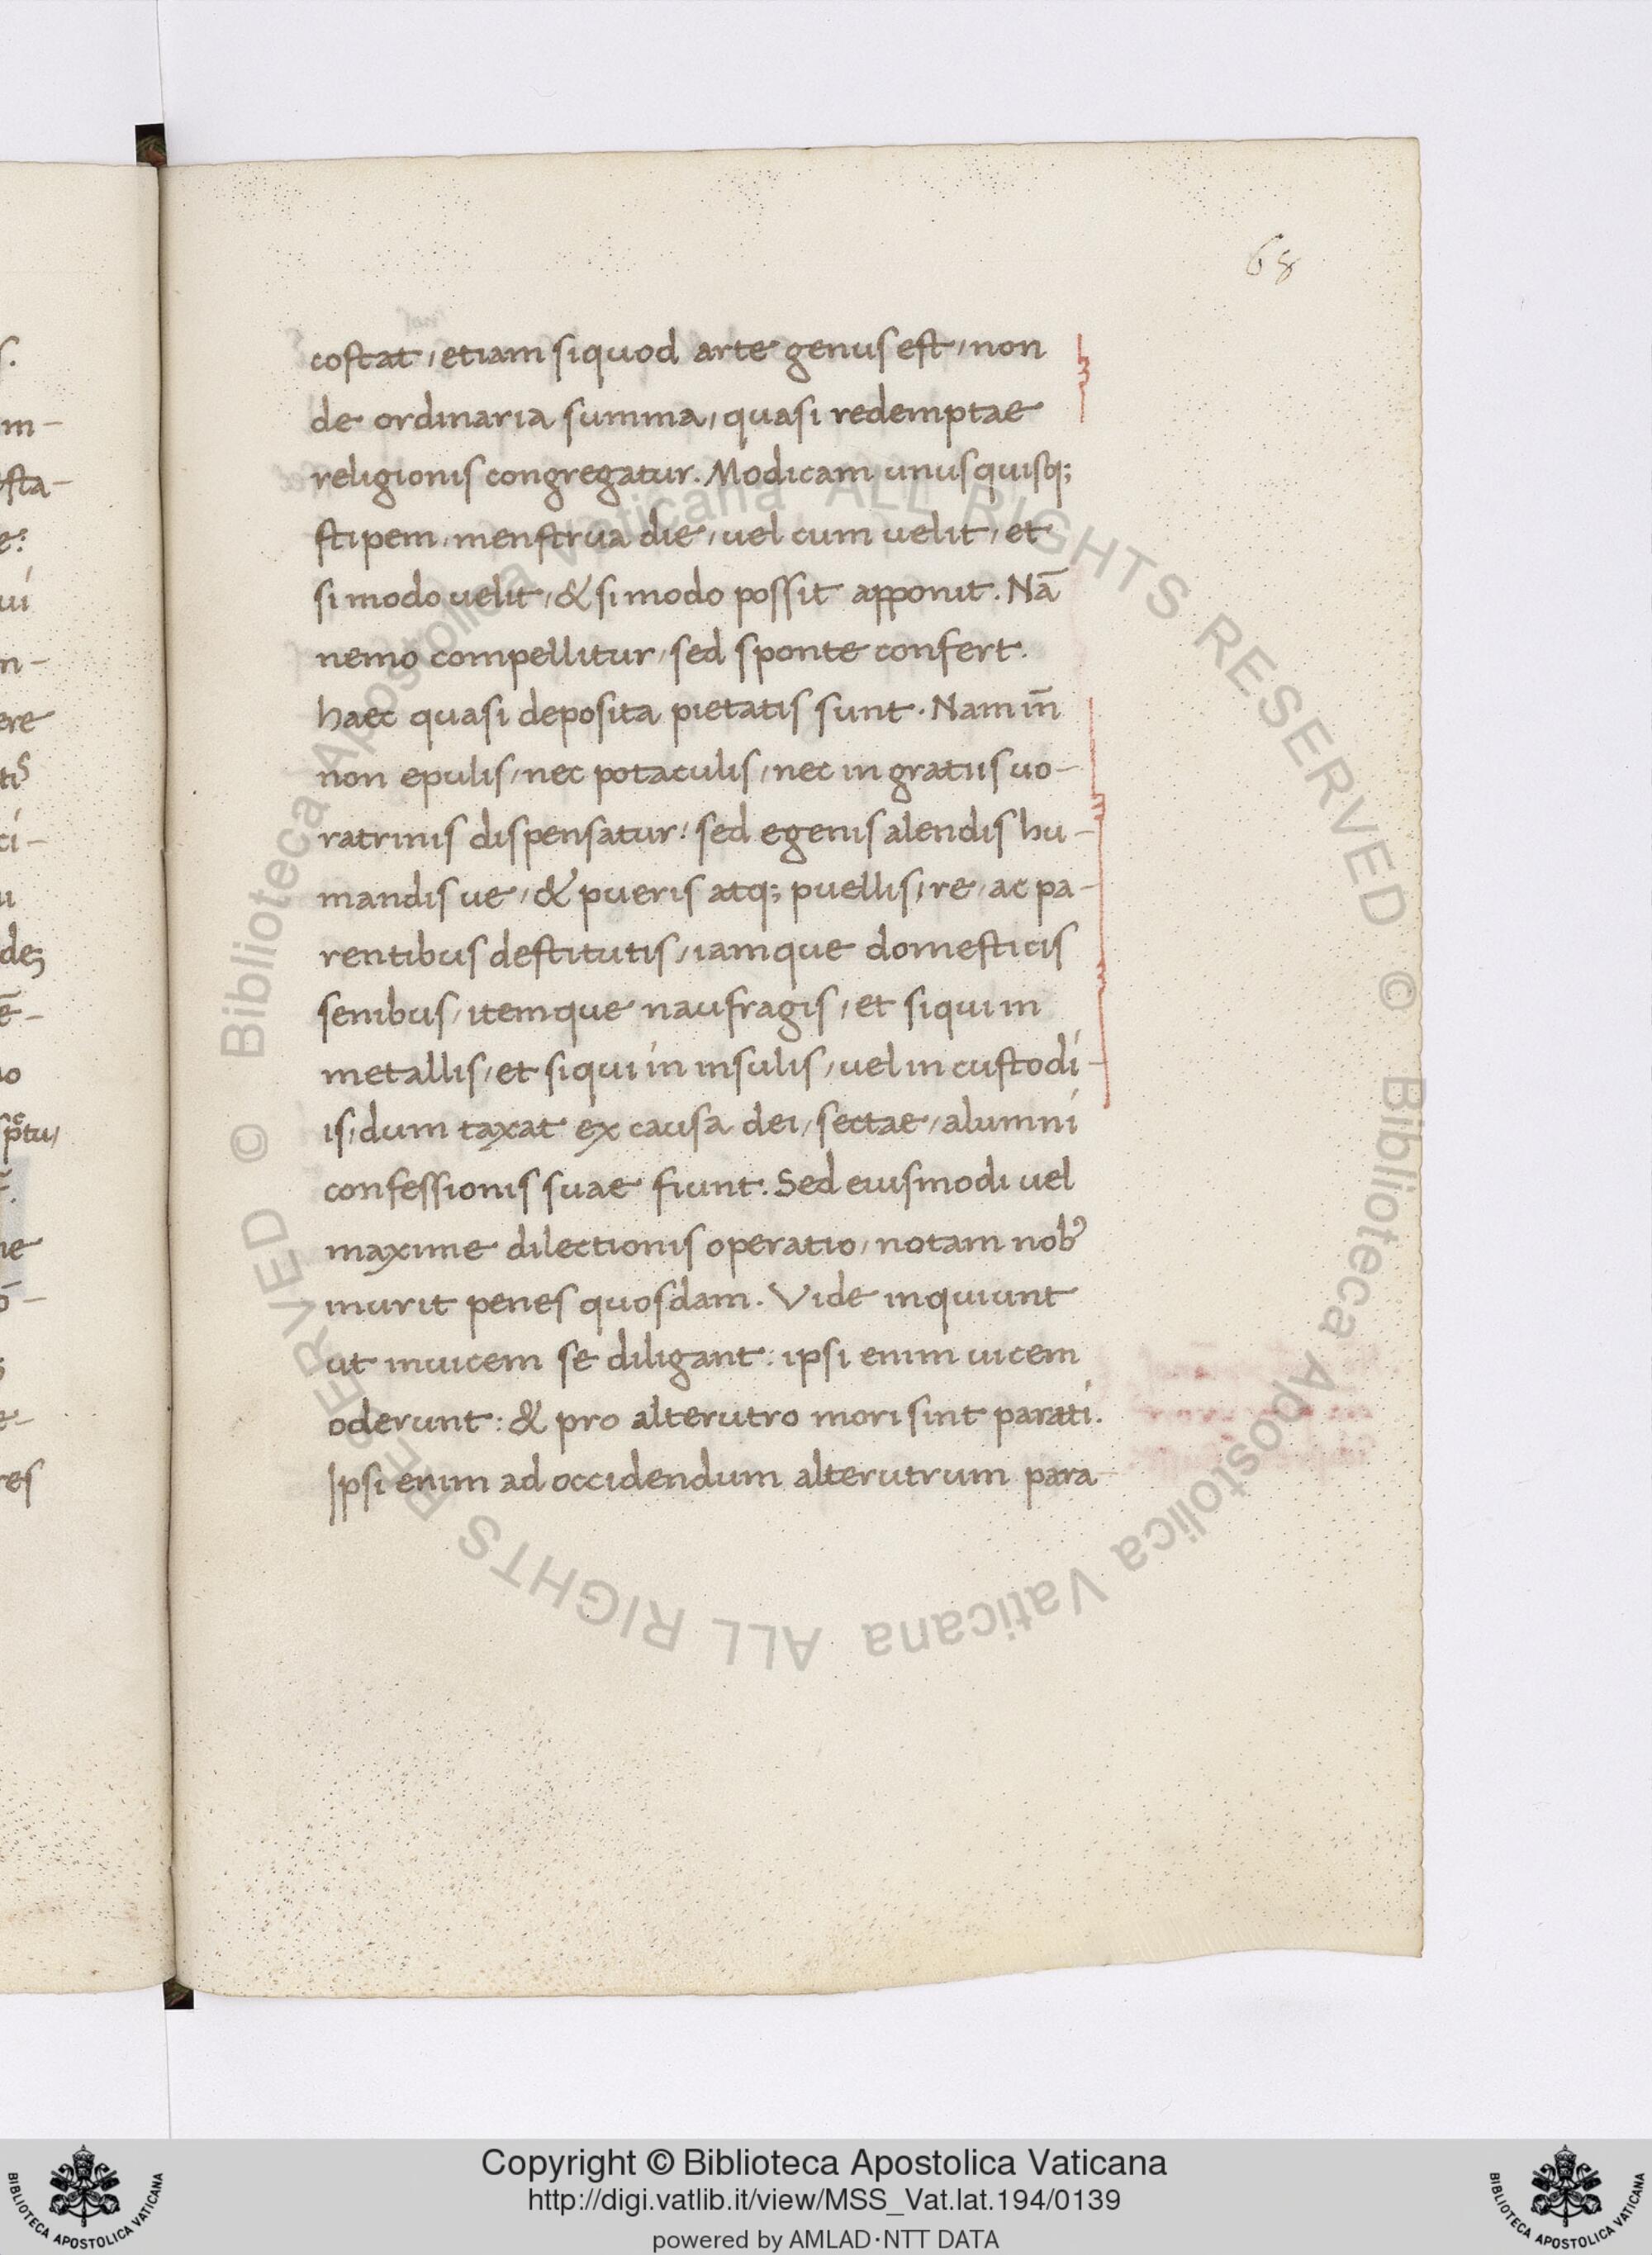 68
costat, etiam siquod arte genus est, non
de ordinaria summa, quasi redemptae
religionis congregatur. Modicam unusquisq;
stipem, menstrua die, uel cum uelit, et
si modo uelit, & si modo possit apponit. Nā
nemo compellitur, sed sponte confert.
haec quasi deposita pietatis sunt. Nam in̄
non epulis, nec potaculis, nec in gratiis uo-
ratrinis dispensatur: sed egenis alendis hu-
mandis ue, & pueris atq; puellis, re, ac pa-
rentibus destitutis, iamque domesticis
senibus, itemque naufragis, et siqui in
metallis, et siqui in insulis, uel in custodi-
is, dum taxat ex causa dei, sectae, alumni
confessionis suae fiunt. Sed eiusmodi uel
maxime dilectionis operatio, notam nobꝰ
inurit penes quosdam. Vide inquiunt
ut inuicem se diligant: ipsi enim uicem
oderunt: & pro alterutro mori sint parati.
Ipsi enim ad occidendum alterutrum para
© Biblioteca Apostolica Vaticana ALL RIGHTS RESERVED © Biblioteca Apostolica Vaticana ALL RIGHTS RESERVED
Copyright © Biblioteca Apostolica Vaticana
http://digi.vatlib.it/view/MSS_Vat.lat.194/0139
powered by AMLAD·NTT DATA
BIBLIOTECA APOSTOLICA VATICANA
BIBLIOTECA APOSTOLICA VATICANA